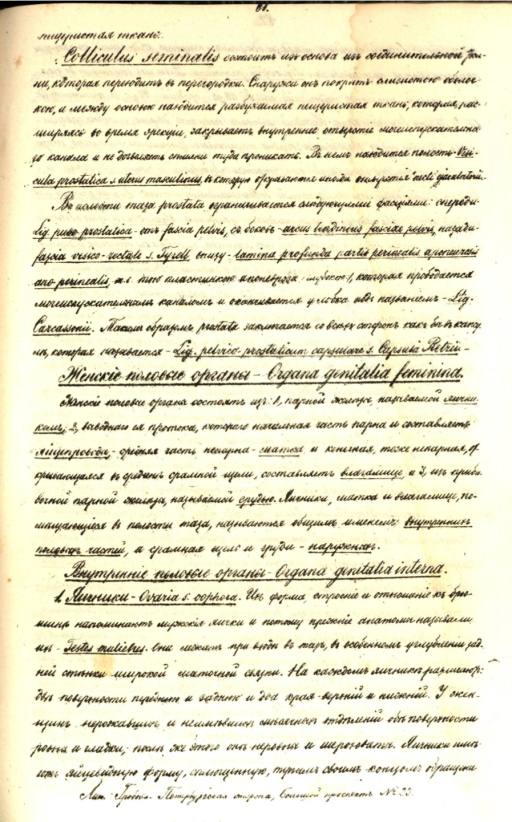 81.
пещеристая ткань.
Colliculus seminalis состоитъ изъ основа изъ соединительной тка-
ни, которая переходитъ въ перегородки. Снаружи онъ покрытъ слизистою оболоч-
кою, а между основою находится разбухаемая пещеристая ткань, которая, рас-
ширяясь во время эрекціи, закрываетъ внутреннее отверстіе мочеиспускательна-
го канала и не дозволяетъ сѣмени туда проникать. Въ немъ находится полость - Vesi-
cula prostatica s. uterus masculinus, въ которую открываются иногда ductus ejaculatorii.
Въ полости таза prostata ограничивается слѣдующими фасціями: спереди -
Lig. pubo-prostatica - отъ fascia pelvis, съ боковъ - arcus tendineus fasciae pelvis, позади -
fascia vesico-rectale s. Tyrell, внизу - lamina profunda partis perinealis aponeurosis
ano-perinealis, т.е. тою пластинкою апоневроза глубокою, которая прободается
мочеиспускательнымъ каналомъ и оканчивается у лобка подъ названіемъ - Lig.
Carcassonii. Такимъ образомъ prostata закрывается со всѣхъ сторонъ какъ бы въ капсу-
лѣ, которая называется - Lig. pelvico-prostaticum capsulare s. Capsula Retzii -
Женскіе половые органы - Organa genitalia feminina.
Женскіе половые органы состоятъ изъ: 1, парной железы, называемой яични-
комъ; 2, выводнаго ея протока, котораго начальная часть парна и составляетъ
яйцепроводы, - средняя часть непарна - матка и конечная, тоже непарная, от-
крывающаяся въ срединѣ срамной щели, составляетъ влагалище, и 3, изъ приба-
вочной парной железы, называемой грудью. Яичники, матка и влагалище, по-
мѣщающіеся въ полости таза, называются общимъ именемъ: внутреннихъ
половыхъ частей, а срамная щель и груди - наружныхъ.
Внутренніе половые органы - Organa genitalia interna.
1. Яичники - Ovaria s. oophora. Ихъ форма, строеніе и отношеніе къ брю-
шинѣ напоминаютъ мужскія яички и потому прежніе анатомы называли
ихъ - Testes muliebres. Они лежатъ при входѣ въ тазъ, въ особенномъ углубленіи зад-
ней стѣнки широкой маточной связки. На каждомъ яичникѣ различаютъ:
двѣ поверхности переднюю и заднюю и два края - верхній и нижній. У жен-
щинъ нерожавшихъ и неимѣвшихъ мѣсячныхъ отдѣленій обѣ поверхности
ровны и гладки, послѣ же этого онѣ неровны и шероховаты. Яичники имѣ-
ютъ яйцевидную форму, сплющенную, тупымъ своимъ концомъ обращены
Лит. Гробова. Петербургская сторона, Большой проспектъ №